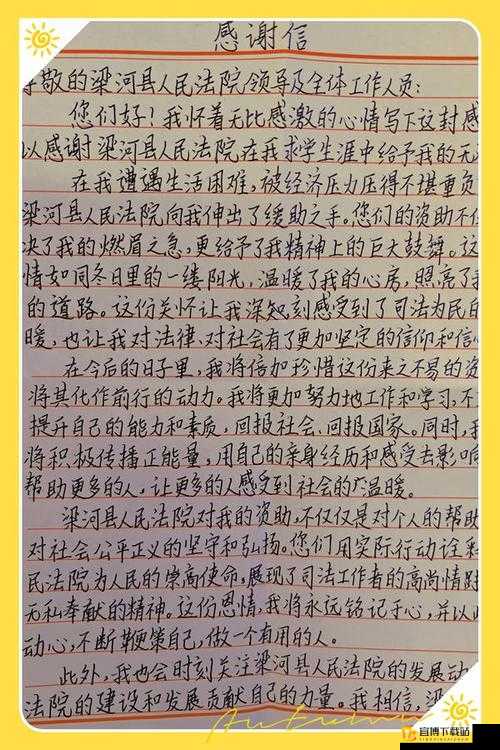 感谢信
敬的梁河县人民法院领导及全体工作人员:
您们好!我怀着无比感激的心情写下这封感
以感谢梁河县人民法院在我求学生涯中给予我的无
在我遭遇生活困难,被经济压力压得不堪重负
梁河县人民法院向我伸出了缓助之手。您们的资助不仅
决了我的燃眉之急,更给予了我精神上的巨大鼓舞。这
情如同冬日里的一缕阳光,温暖了我的心房,照亮了我
的道路。这份关怀让我深知,刻感受到了司法为民的
暖,也让我对法律、对社会有了更加坚定的信仰和信
在今后的日子里,我将倍加珍惜这份来之不易的资
将其化作前行的动力。我将更加努力地工作和学习,不
提升自己的能力和素质,回报社会、回报国家。同时,我
将积极传播正能量,用自己的亲身经历和感受去影响
帮助更多的人,让更多的人感受到社会的温暖。
梁河县人民法院对我的资助,不仅仅是对个人的帮助
对社会公平正义的坚守和弘扬。您们用实际行动诠释
民法院为人民的崇高使命,展现了司法工作者的高尚情
无私奉献的精神。这份恩情,我将永远铭记于心,并以
动心,不断鞭策自己,做一个有用的人。
此外,我也会时刻关注梁河县人民法院的发展动
法院的建设和发展贡献自己的力量。我相信,梁
Autumn
宜博下载站